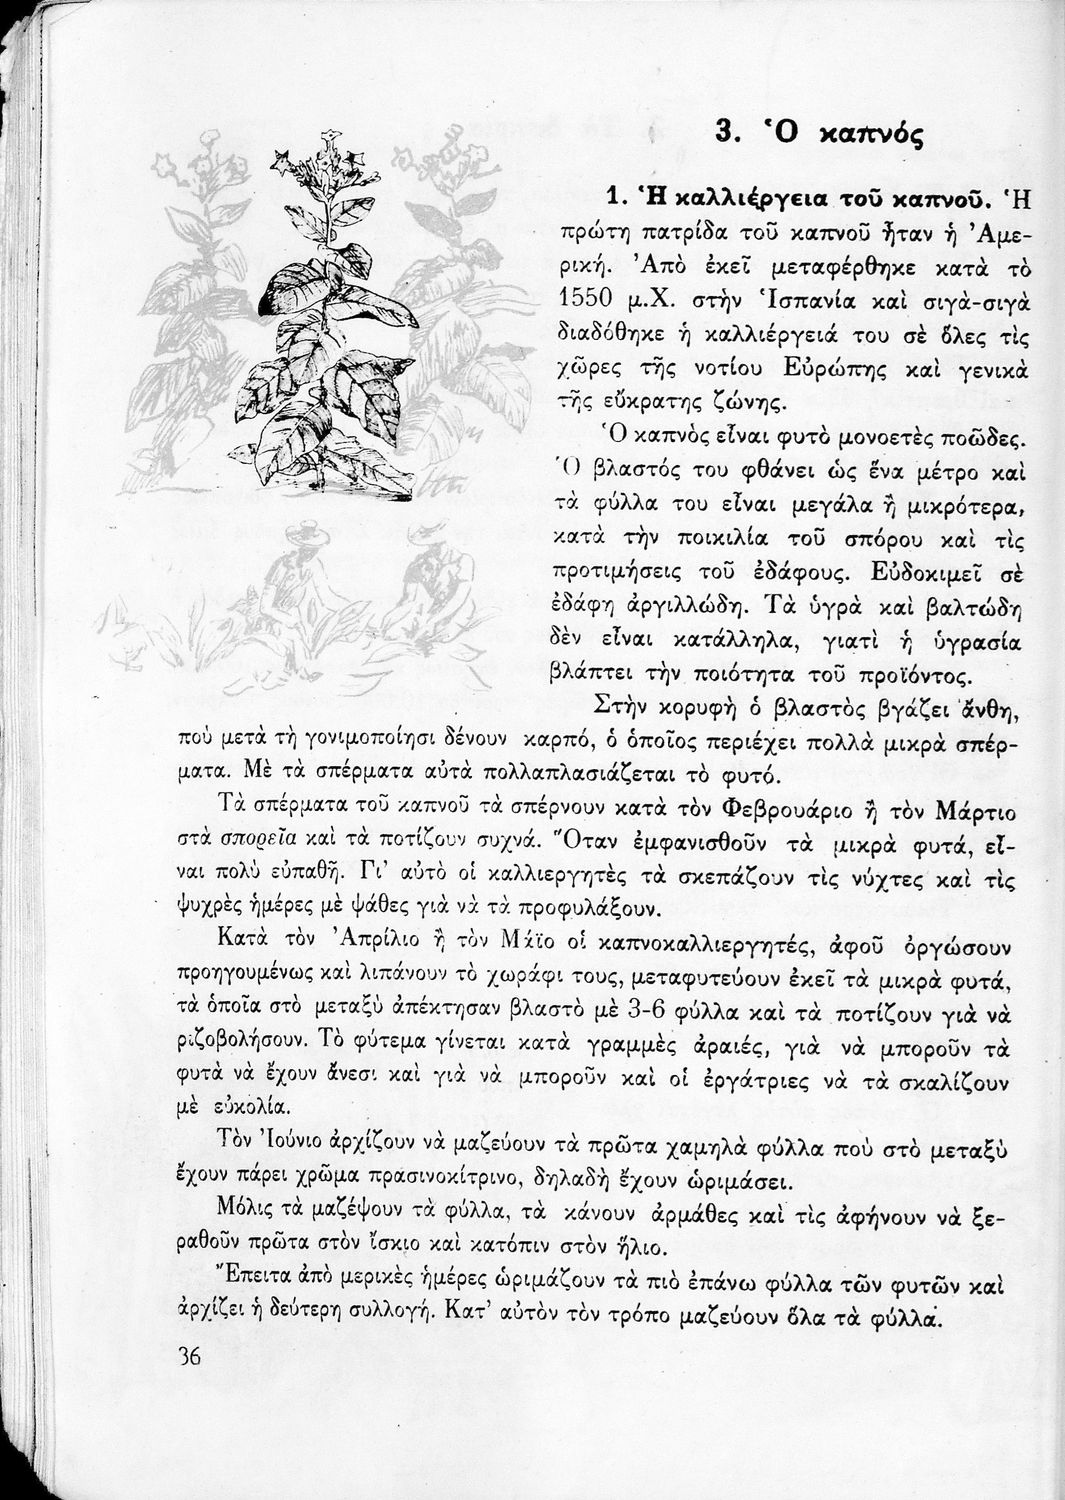 3. Ὁ καπνός
1. Ἡ καλλιέργεια τοῦ καπνοῦ. Ἡ
πρώτη πατρίδα τοῦ καπνοῦ ἦταν ἡ Ἀμε-
ρική. Ἀπὸ ἐκεῖ μεταφέρθηκε κατὰ τὸ
1550 μ.Χ. στὴν Ἱσπανία καὶ σιγὰ-σιγὰ
διαδόθηκε ἡ καλλιέργειά του σὲ ὅλες τὶς
χῶρες τῆς νοτίου Εὐρώπης καὶ γενικὰ
τῆς εὔκρατης ζώνης.
Ὁ καπνὸς εἶναι φυτὸ μονοετὲς ποῶδες.
Ὁ βλαστός του φθάνει ὡς ἕνα μέτρο καὶ
τὰ φύλλα του εἶναι μεγάλα ἢ μικρότερα,
κατὰ τὴν ποικιλία τοῦ σπόρου καὶ τὶς
προτιμήσεις τοῦ ἐδάφους. Εὐδοκιμεῖ σὲ
ἐδάφη ἀργιλλώδη. Τὰ ὑγρὰ καὶ βαλτώδη
δὲν εἶναι κατάλληλα, γιατὶ ἡ ὑγρασία
βλάπτει τὴν ποιότητα τοῦ προϊόντος.
Στὴν κορυφὴ ὁ βλαστὸς βγάζει ἄνθη,
ποὺ μετὰ τὴ γονιμοποίησι δένουν καρπό, ὁ ὁποῖος περιέχει πολλὰ μικρὰ σπέρ-
ματα. Μὲ τὰ σπέρματα αὐτὰ πολλαπλασιάζεται τὸ φυτό.
Τὰ σπέρματα τοῦ καπνοῦ τὰ σπέρνουν κατὰ τὸν Φεβρουάριο ἢ τὸν Μάρτιο
στὰ σπορεῖα καὶ τὰ ποτίζουν συχνά. Ὅταν ἐμφανισθοῦν τὰ μικρὰ φυτά, εἶ-
ναι πολὺ εὐπαθῆ. Γι᾽ αὐτὸ οἱ καλλιεργητὲς τὰ σκεπάζουν τὶς νύχτες καὶ τὶς
ψυχρὲς ἡμέρες μὲ ψάθες γιὰ νὰ τὰ προφυλάξουν.
Κατὰ τὸν Ἀπρίλιο ἢ τὸν Μάϊο οἱ καπνοκαλλιεργητές, ἀφοῦ ὀργώσουν
προηγουμένως καὶ λιπάνουν τὸ χωράφι τους, μεταφυτεύουν ἐκεῖ τὰ μικρὰ φυτά,
τὰ ὁποῖα στὸ μεταξὺ ἀπέκτησαν βλαστὸ μὲ 3-6 φύλλα καὶ τὰ ποτίζουν γιὰ νὰ
ριζοβολήσουν. Τὸ φύτεμα γίνεται κατὰ γραμμὲς ἀραιές, γιὰ νὰ μποροῦν τὰ
φυτὰ νὰ ἔχουν ἄνεσι καὶ γιὰ νὰ μποροῦν καὶ οἱ ἐργάτριες νὰ τὰ σκαλίζουν
μὲ εὐκολία.
Τὸν Ἰούνιο ἀρχίζουν νὰ μαζεύουν τὰ πρῶτα χαμηλὰ φύλλα ποὺ στὸ μεταξὺ
ἔχουν πάρει χρῶμα πρασινοκίτρινο, δηλαδὴ ἔχουν ὡριμάσει.
Μόλις τὰ μαζέψουν τὰ φύλλα, τὰ κάνουν ἀρμάθες καὶ τὶς ἀφήνουν νὰ ξε-
ραθοῦν πρῶτα στὸν ἴσκιο καὶ κατόπιν στὸν ἥλιο.
Ἔπειτα ἀπὸ μερικὲς ἡμέρες ὡριμάζουν τὰ πιὸ ἐπάνω φύλλα τῶν φυτῶν καὶ
ἀρχίζει ἡ δεύτερη συλλογή. Κατ᾽ αὐτὸν τὸν τρόπο μαζεύουν ὅλα τὰ φύλλα.
36